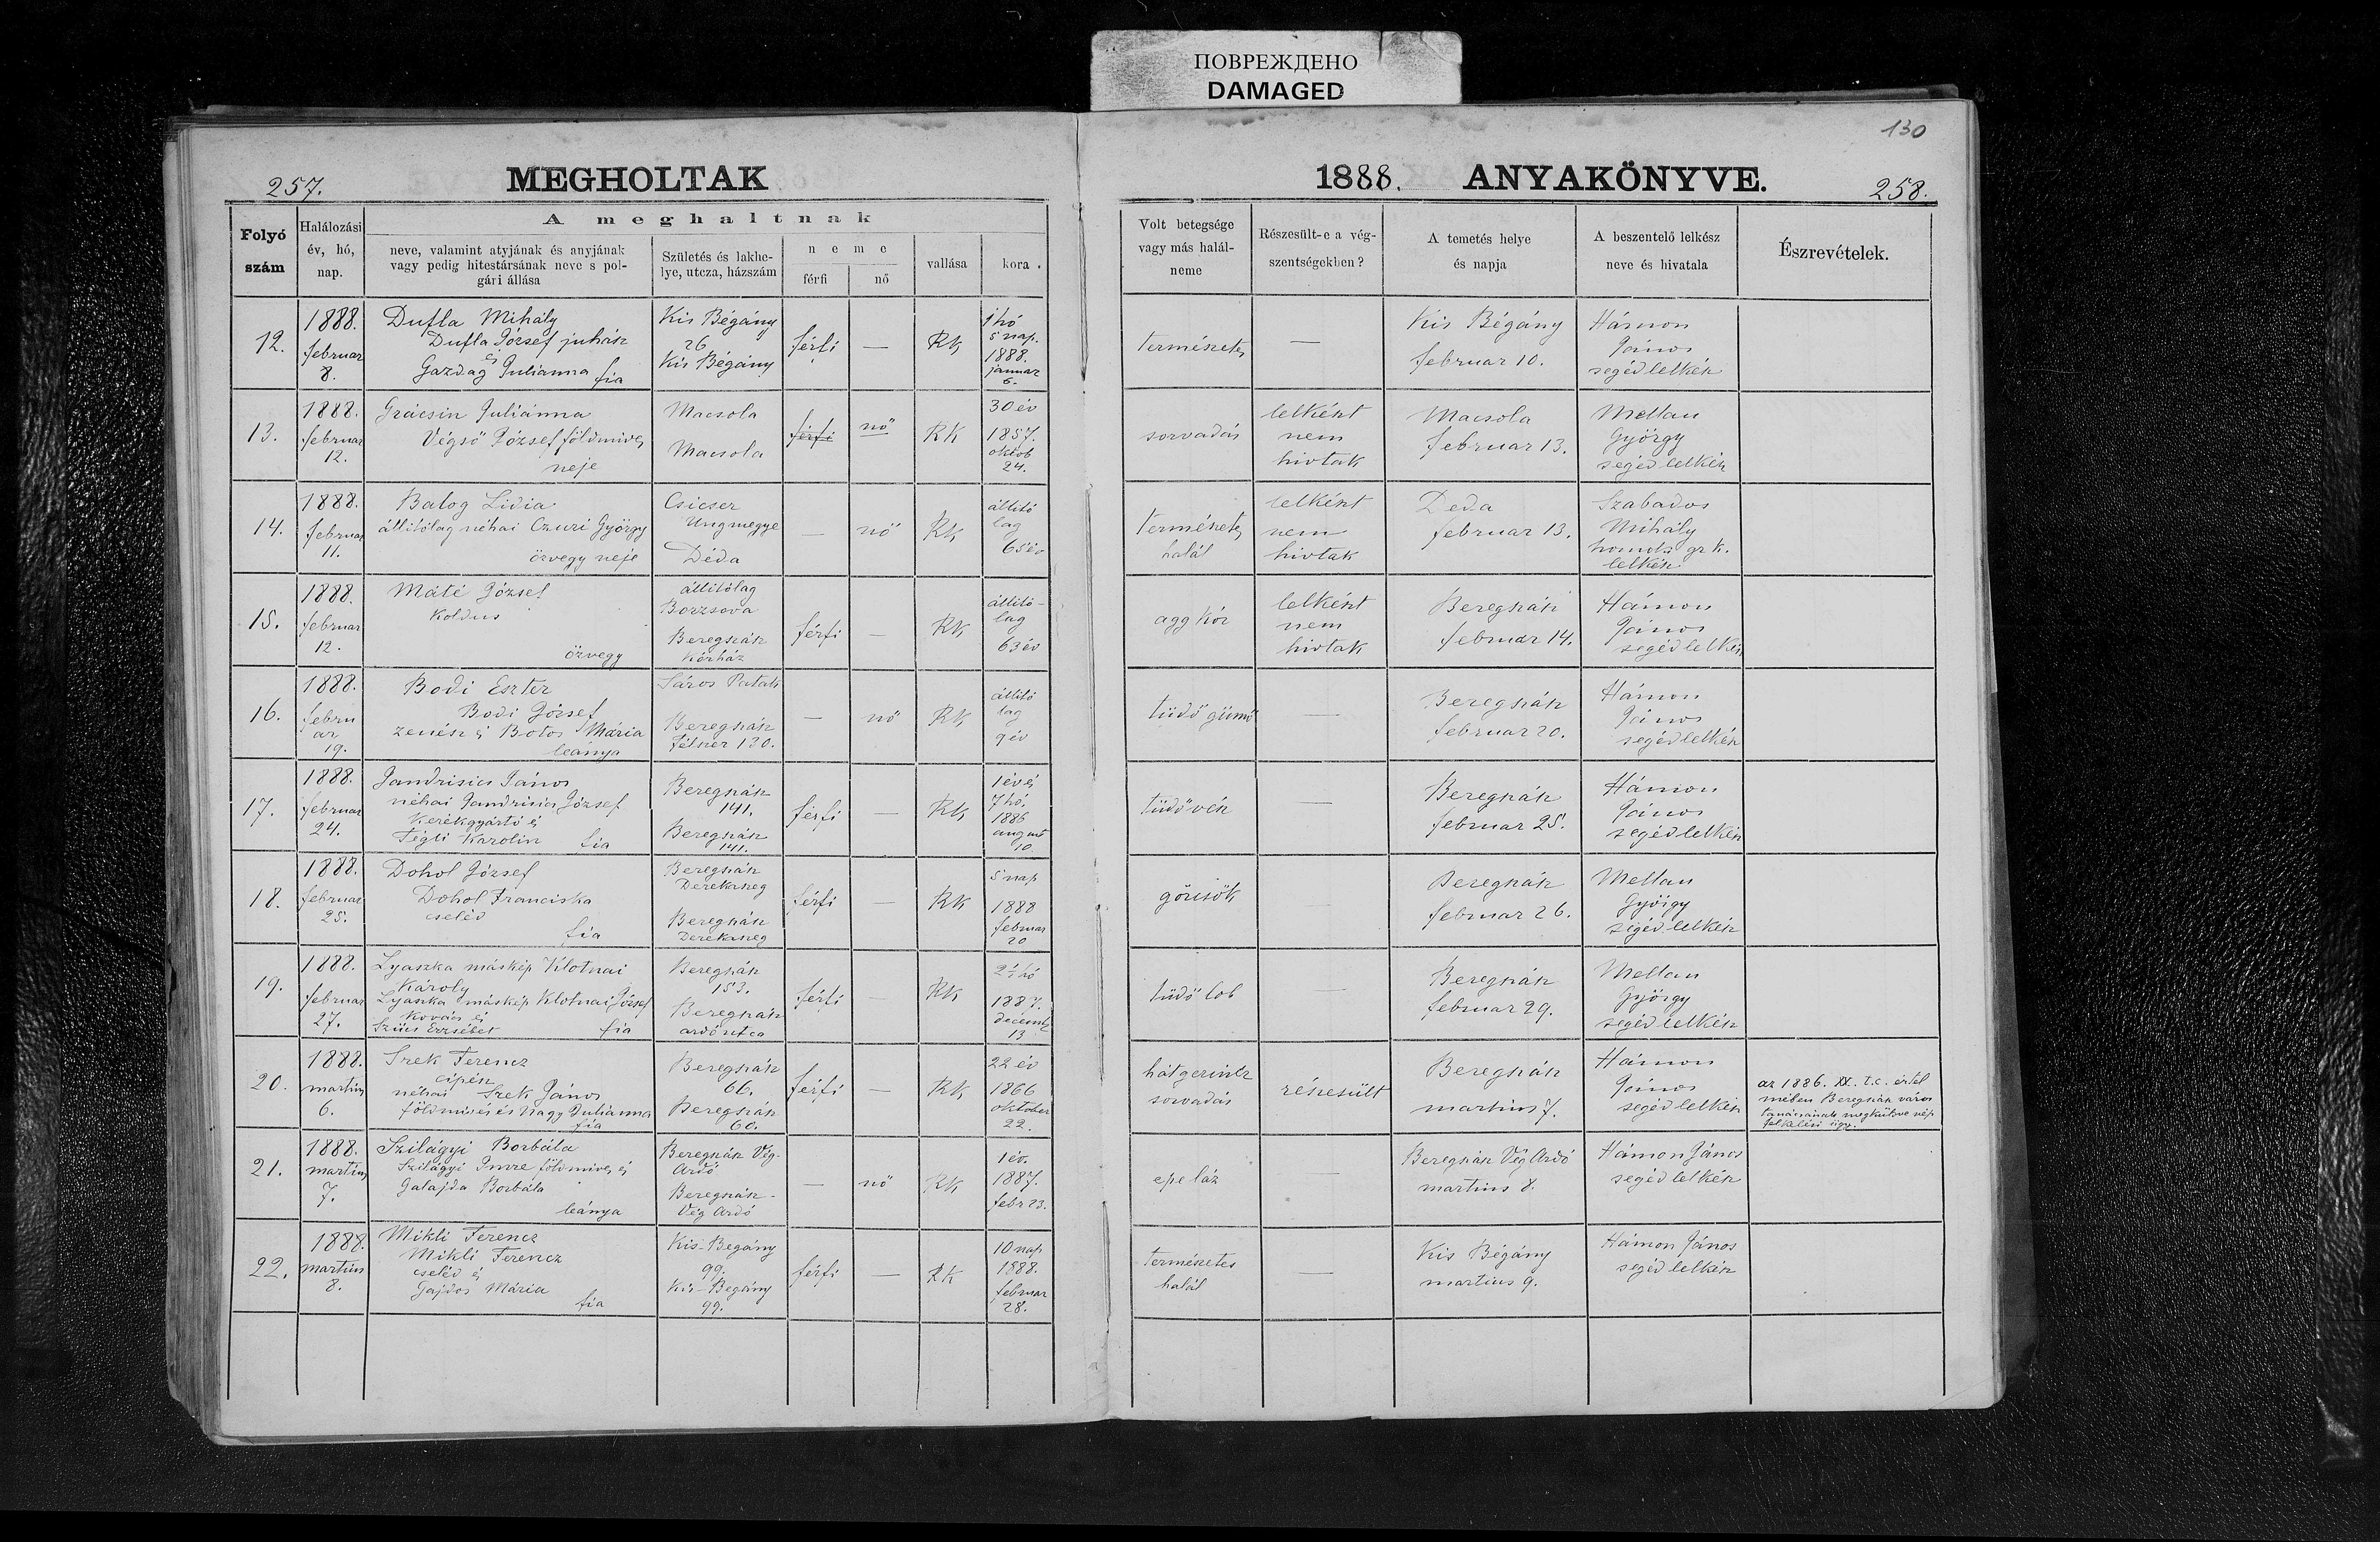 ПОВРЕЖДЕНО
DAMAGED
130
257.
MEGHOLTAK
1888. ANYAKÖNYVE.
258.
Folyó szám
Halálozási év, hó, nap.
A meghaltnak
neve, valamint atyjának és anyjának
vagy pedig hitestársának neve s pol-
gári állása
Születés és lakhe-
lye, utcza, házszám
neme
férfi
nő
vallása
kora.
Volt betegsége
vagy más halál-
neme
Részesült-e a vég-
szentségekben?
A temetés helye
és napja
A beszentelő lelkész
neve és hivatala
Észrevételek.
12.
1888.
februar
8.
Dufla Mihály
Dufla József juhász
és
Gazdag Julianna fia
Kis Bégány
26
Kis Bégány
férfi
—
RK
1 hó
5 nap.
1888.
januar
6.
természetes
—
Kis Bégány
februar 10.
Hámon
János
segédlelkész
13.
1888.
februar
12.
Grácsin Juliánna
Végső József földmives
neje
Macsola
Macsola
férfi
nő
RK
30 év
1857.
oktob
24.
sorvadás
lelkészt
nem
hivtak
Macsola
februar 13.
Mellau
György
segédlelkész
14.
1888.
februar
11.
Balog Lidia
állitólag néhai Czuri György
özvegy neje
Csicser
Ungmegye
Déda
—
nő
RK
állitó
lag
65 év
természetes
halál
lelkészt
nem
hivtak
Deda
februar 13.
Szabados
Mihály
gr k.
lelkész
15.
1888.
februar
12.
Máté József
koldus
özvegy
állitólag
Borzsova
Beregszász
Kórház
férfi
—
RK
állitó-
lag
63 év
agg kór
lelkészt
nem
hivtak
Beregszász
februar 14.
Hámon
János
segédlelkész
16.
1888.
febru
ar
19.
Bodi Eszter
Bodi József
zenész és Botos Mária
leánya
Sáros Patak
Beregszász
félszer 130.
—
nő
RK
állitó
lag
9 év
tüdő gümő
—
Beregszász
februar 20.
Hámon
János
segédlelkész
17.
1888.
februar
24.
Jandrisics János
néhai Jandrisics József
Kerékgyártó és
Tégli Karolin fia
Beregszász
141.
Beregszász
141.
férfi
—
RK
1 év és
7 hó.
1886
august
10
tüdővész
—
Beregszász
februar 25.
Hámon
János
segédlelkész
18.
1888.
februar
25.
Dohol József
Dohol Franciska
cseléd
fia
Beregszász
Derekaszeg
Beregszász
Derekaszeg
férfi
—
RK
5 nap
1888
februar
20
görcsök
—
Beregszász
februar 26.
Mellau
György
segédlelkész
19.
1888.
februar
27.
Lyaszka máskép Klotnai
Károly
Lyaszka máskép Klotnai József
Kovács és
Szücs Erzsébet fia
Beregszász
153.
Beregszász
ardóutca
férfi
—
RK
2½ hó
1887.
decemb
13
tüdőlob
—
Beregszász
februar 29.
Mellau
György
segédlelkész
20.
1888.
martius
6.
Szek Ferencz
cipész
néhai Szek János
földmives és Nagy Julianna
fia
Beregszász
66.
Beregszász
60.
férfi
—
RK
22 év
1866
oktober
22.
hátgerincz
sorvadás
részesült
Beregszász
martius 7.
Hámon
János
segédlelkész
az 1886. XX. t.c. értel
mében Beregszász város
tanácsának megküldve nép
felkelési ügy.
21.
1888.
martius
7.
Szilágyi Borbála
Szilágyi Imre földmives és
Galajda Borbála
leánya
Beregszász Vég-
Ardó
Beregszász-
Vég Ardó
—
nő
RK
1 év.
1887.
febr 23.
epe láz
—
Beregszász Vég Ardó
martius 8.
Hámon János
segédlelkész
22.
1888.
martius
8.
Mikli Ferencz
Mikli Ferencz
cseléd és
Gajdos Mária
fia
Kis-Begány
99.
Kis-Begány
99.
férfi
—
RK
10 nap
1888.
februar
28.
természetes
halál
—
Kis Bégány
martius 9.
Hámon János
segédlelkész